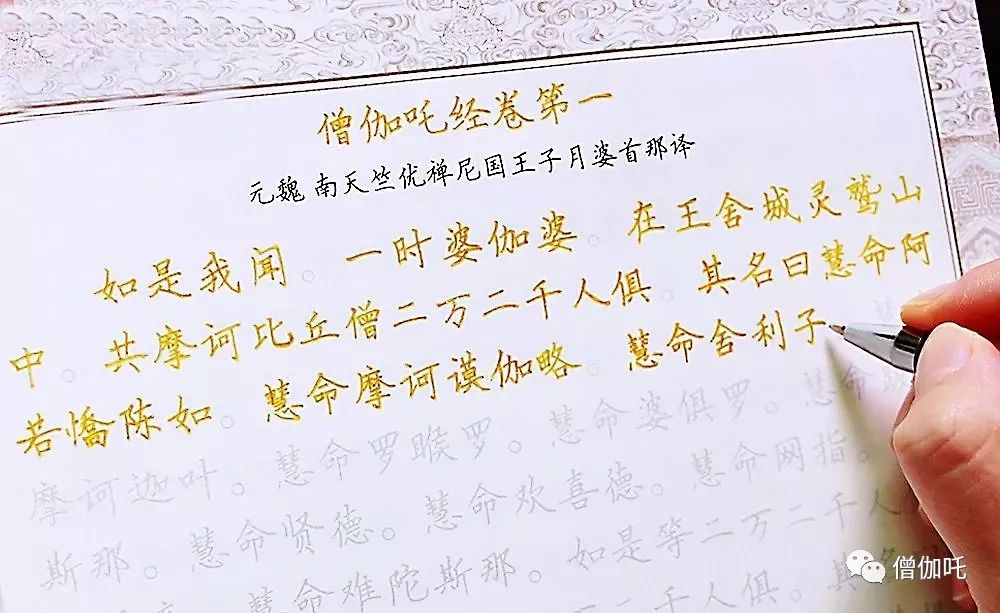 僧伽吒经卷第一
元魏 南天竺优禅尼国王子月婆首那译
如是我闻。一时婆伽婆。在王舍城灵鹫山
中。共摩诃比丘僧二万二千人俱。其名曰慧命阿
若憍陈如。慧命摩诃谟伽略。慧命舍利子
摩诃迦叶。慧命罗睺罗。慧命婆俱罗。慧命跋
斯那。慧命贤德。慧命欢喜德。慧命网指。
慧命难陀斯那。如是等二万二千人
人俱。其名
僧伽吒